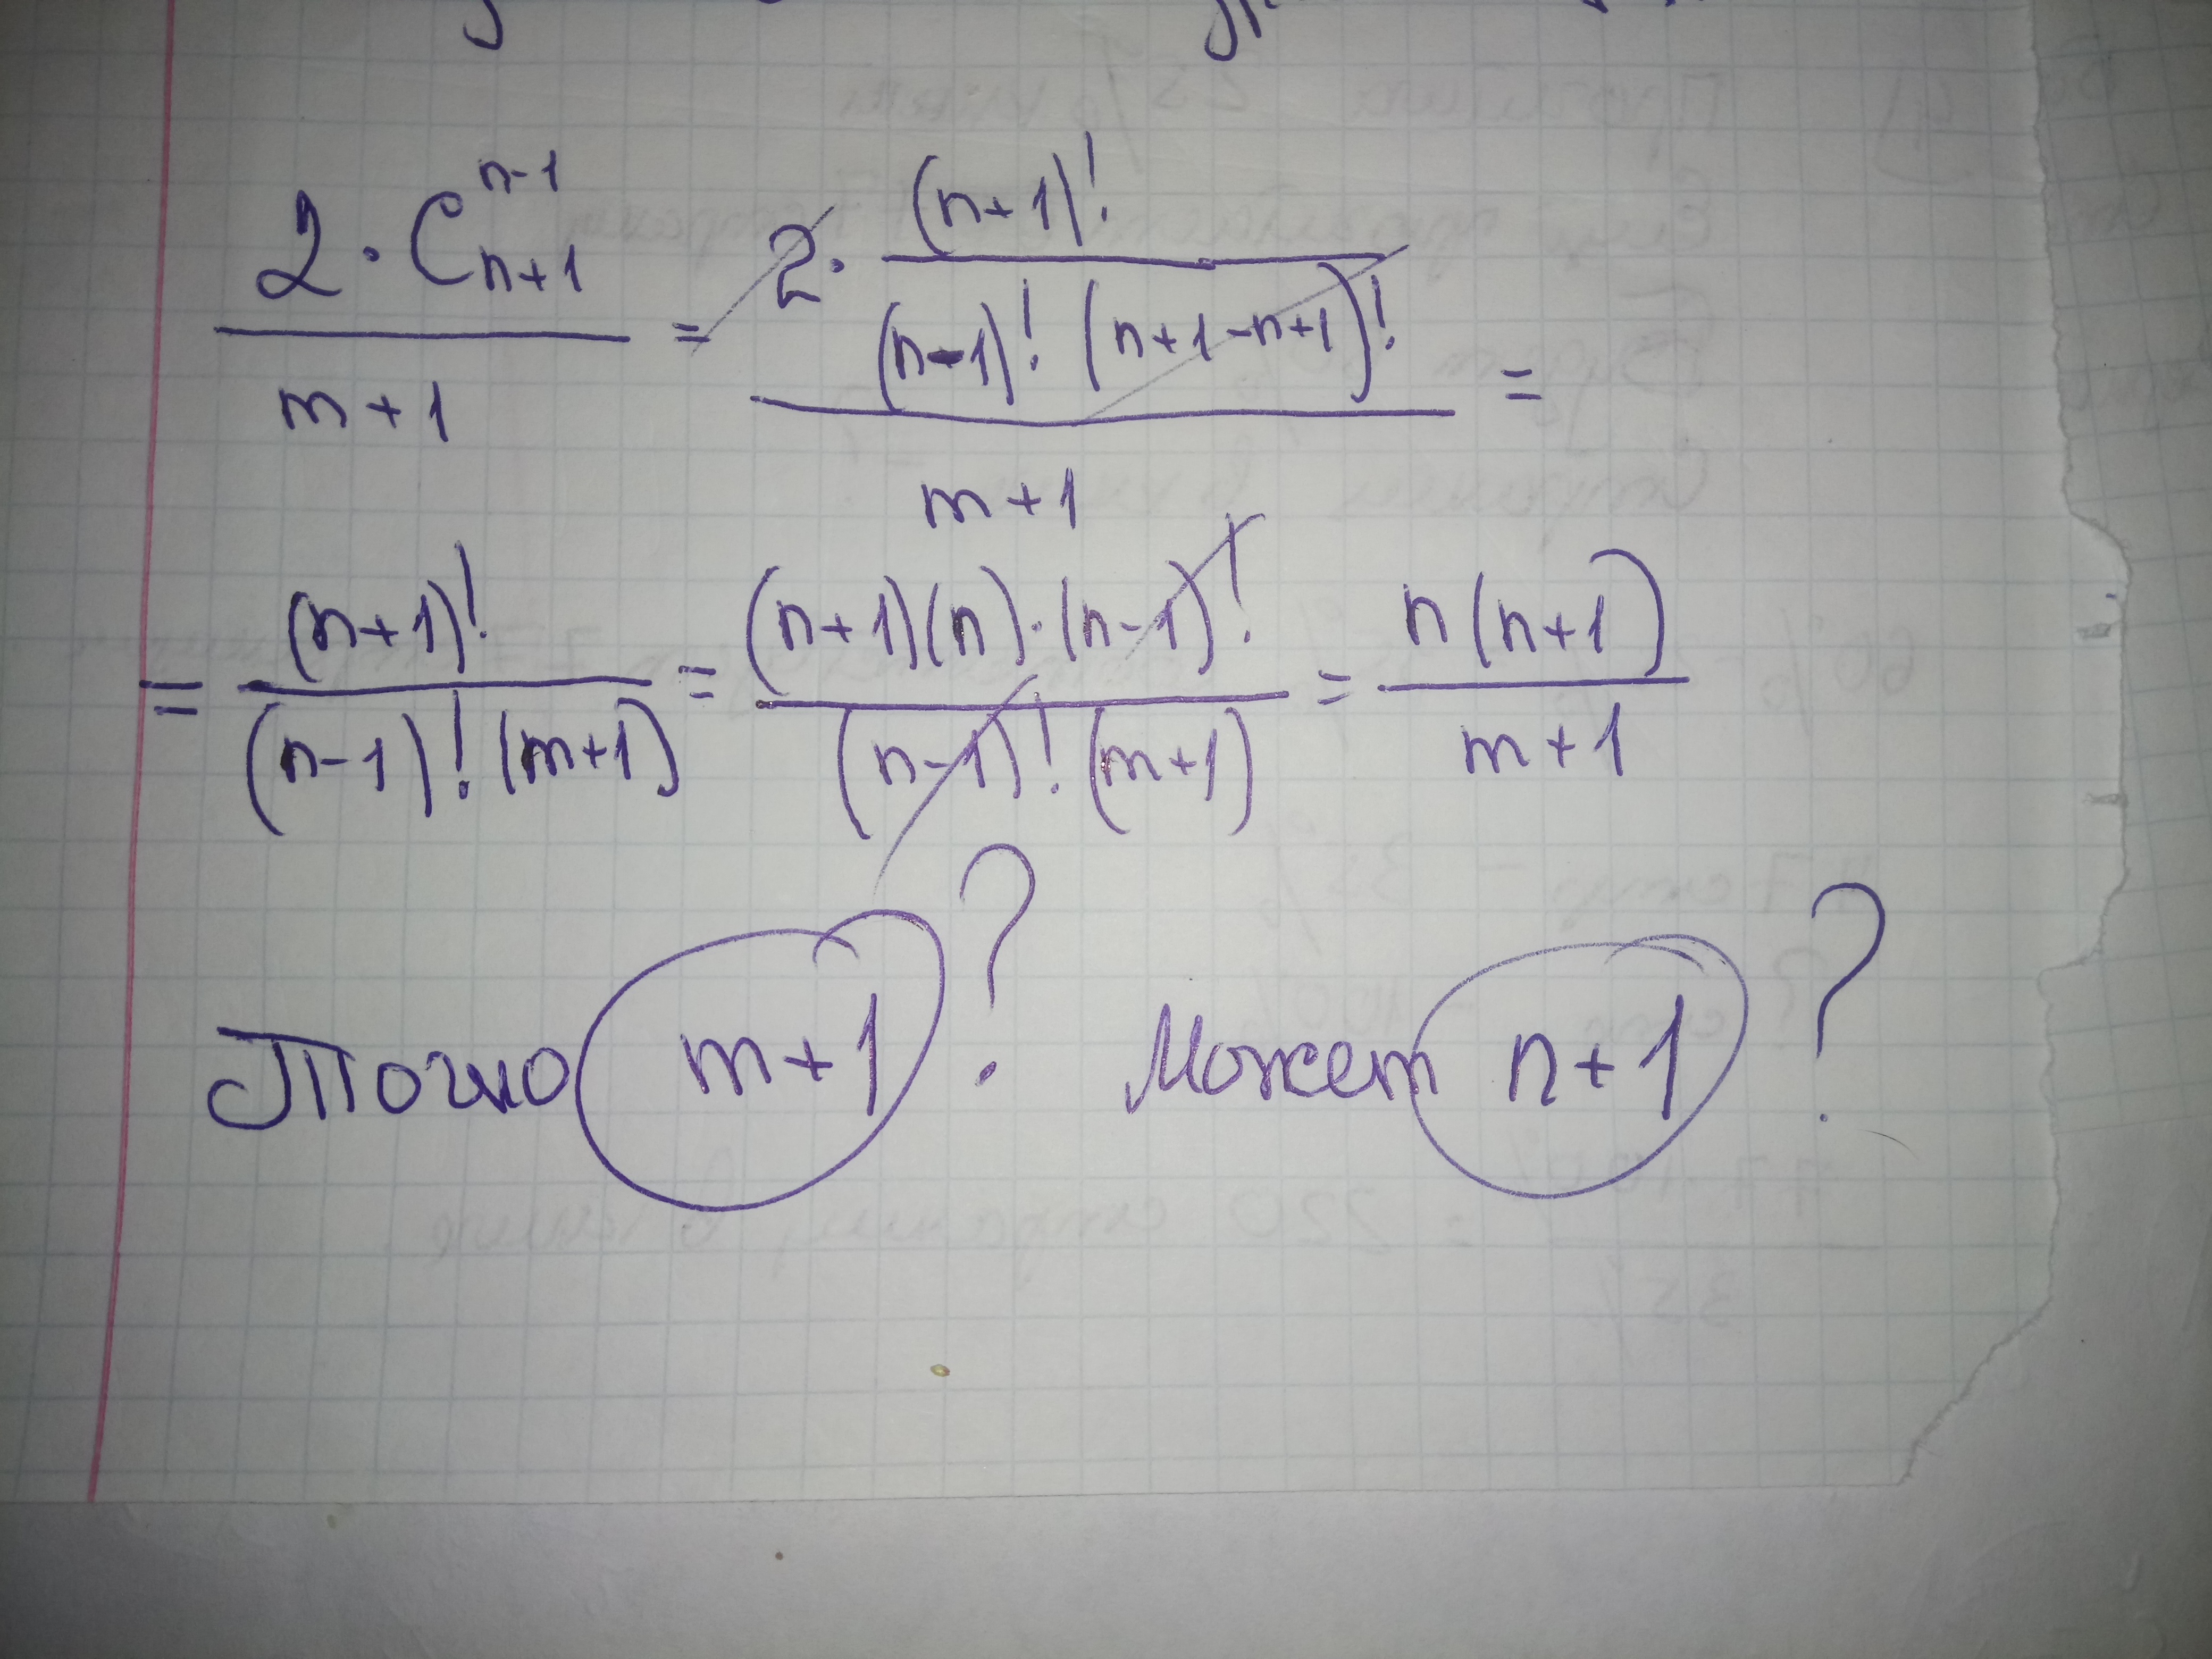 2 · C_{n+1}^{n-1} / m+1 = 2 · (n+1)! / (n-1)! (n+1-n+1)! / m+1 =
= (n+1)! / (n-1)! (m+1) = (n+1)(n)·(n-1)! / (n-1)! (m+1) = n(n+1) / m+1
Точно m+1? Может n+1?